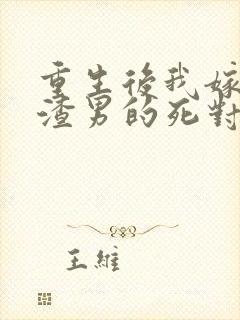 重生後我嫁
渣男的死對
王維